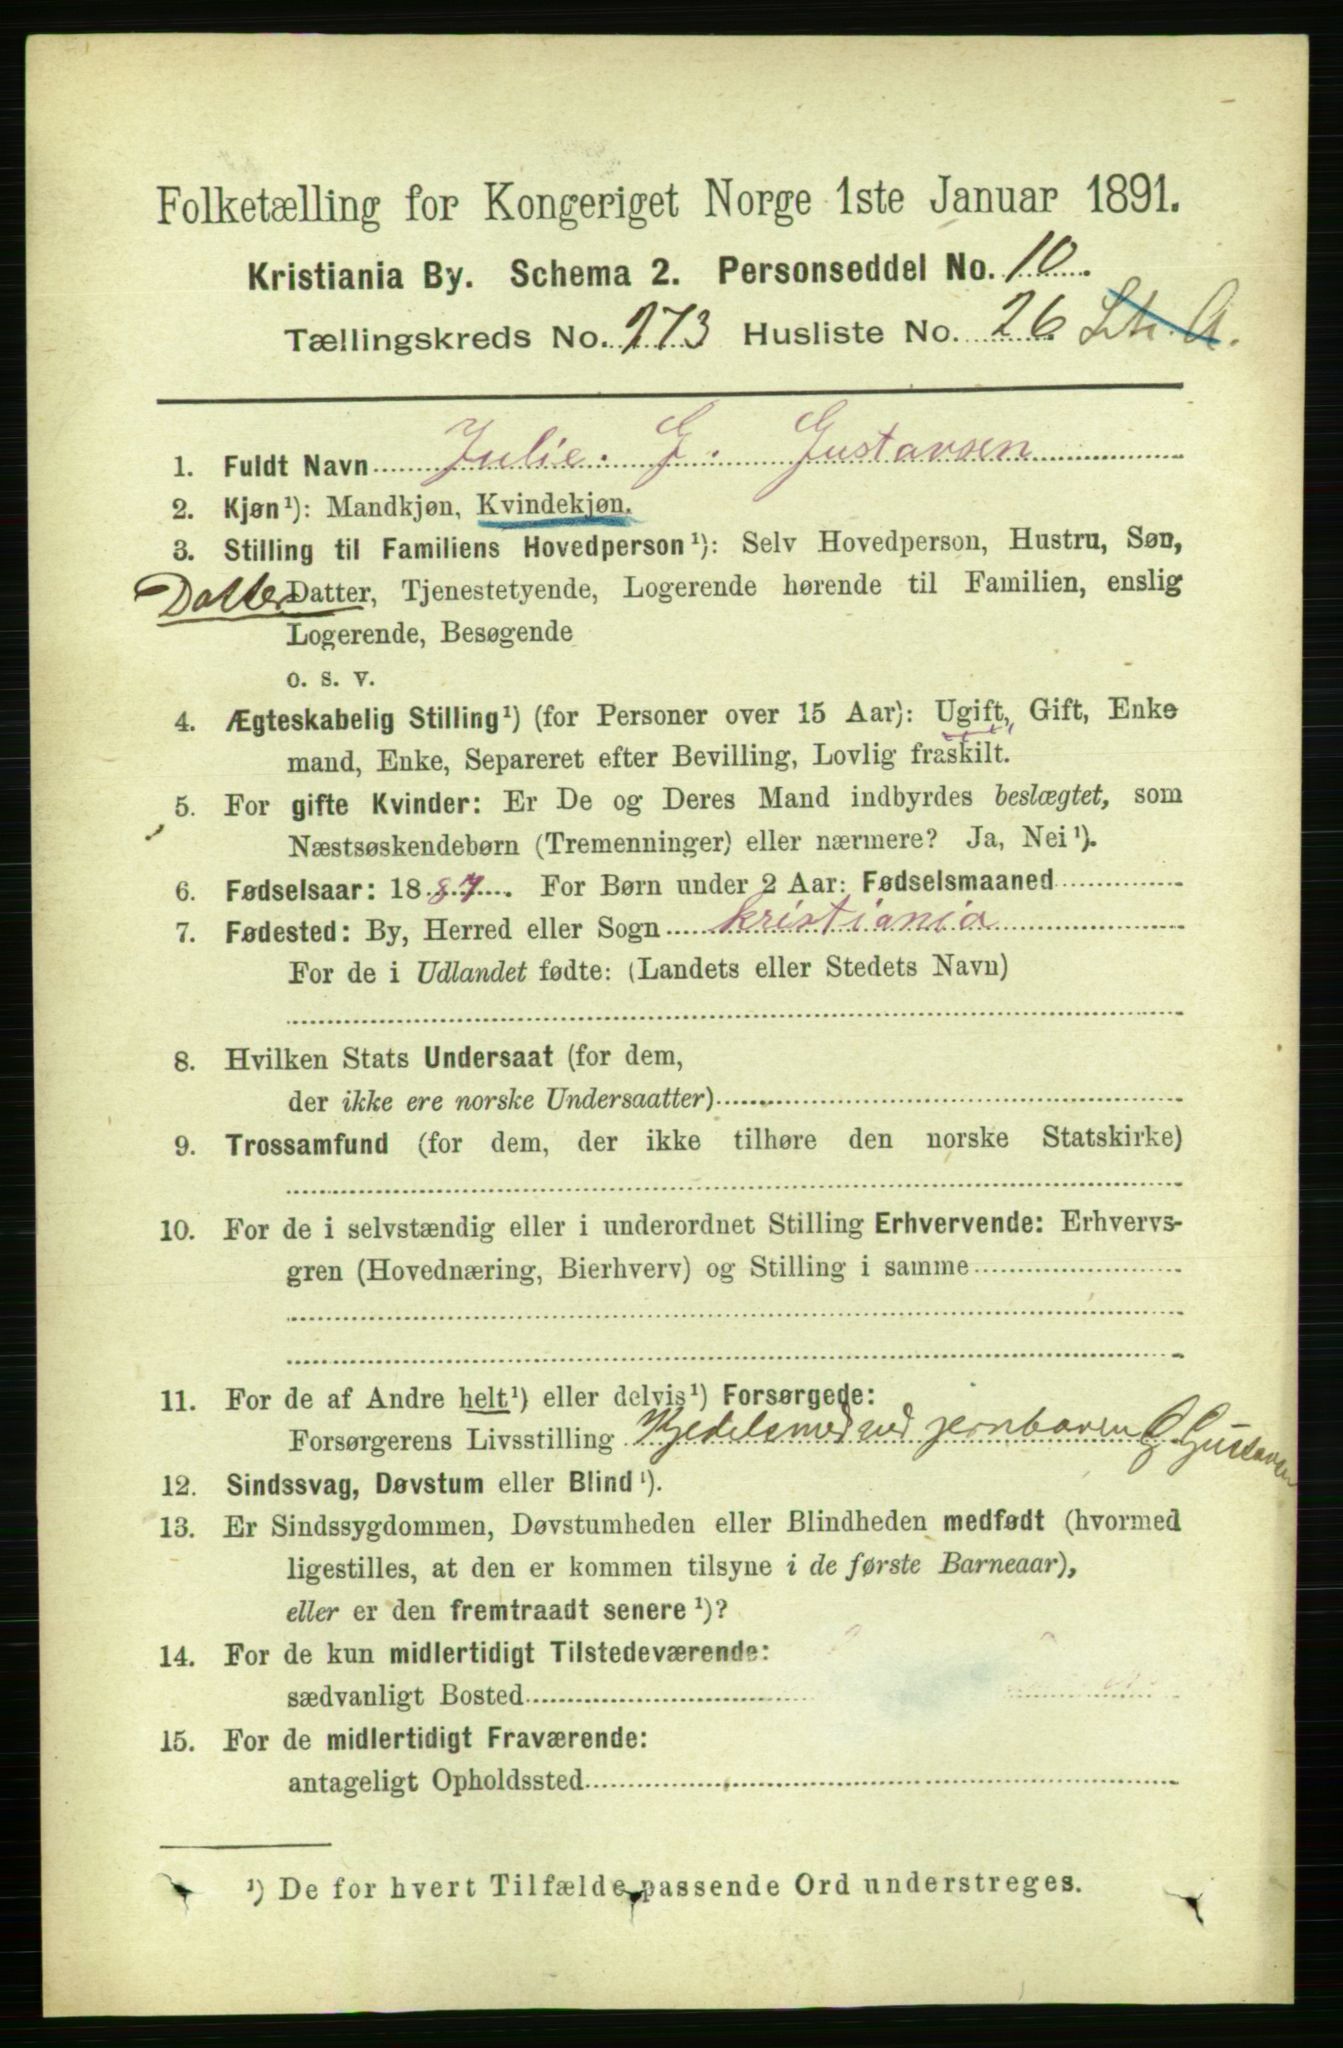 Folketælling for Kongeriget Norge 1ste Januar 1891.
Kristiania By. Schema 2. Personseddel No. 10.
Tællingskreds No. 273 Husliste No. 26 Litr. A.
1. Fuldt Navn Julie. G. Gustavsen
2. Kjøn¹): Mandkjøn, Kvindekjøn.
3. Stilling til Familiens Hovedperson¹): Selv Hovedperson, Hustru, Søn,
Datter Datter, Tjenestetyende, Logerende hørende til Familien, enslig
Logerende, Besøgende
o. s. v.
4. Ægteskabelig Stilling¹) (for Personer over 15 Aar): Ugift, Gift, Enke
mand, Enke, Separeret efter Bevilling, Lovlig fraskilt.
5. For gifte Kvinder: Er De og Deres Mand indbyrdes beslægtet, som
Næstsøskendebørn (Tremenninger) eller nærmere? Ja, Nei¹).
6. Fødselsaar: 1887. For Børn under 2 Aar: Fødselsmaaned
7. Fødested: By, Herred eller Sogn kristiania
For de i Udlandet fødte: (Landets eller Stedets Navn)
8. Hvilken Stats Undersaat (for dem,
der ikke ere norske Undersaatter)
9. Trossamfund (for dem, der ikke tilhøre den norske Statskirke)
10. For de i selvstændig eller i underordnet Stilling Erhvervende: Erhvervs-
gren (Hovednæring, Bierhverv) og Stilling i samme
11. For de af Andre helt¹) eller delvis¹) Forsørgede:
Forsørgerens Livsstilling Kjedelsmed ved jernbanen G Gustavsen
12. Sindssvag, Døvstum eller Blind¹).
13. Er Sindssygdommen, Døvstumheden eller Blindheden medfødt (hvormed
ligestilles, at den er kommen tilsyne i de første Barneaar),
eller er den fremtraadt senere¹)?
14. For de kun midlertidigt Tilstedeværende:
sædvanligt Bosted
15. For de midlertidigt Fraværende:
antageligt Opholdssted
¹) De for hvert Tilfælde passende Ord understreges.